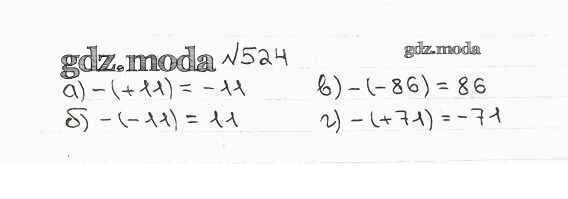 gdz.moda №524
gdz.moda
а) -(+11) = -11
б) -(-11) = 11
в) -(-86) = 86
г) -(+71) = -71